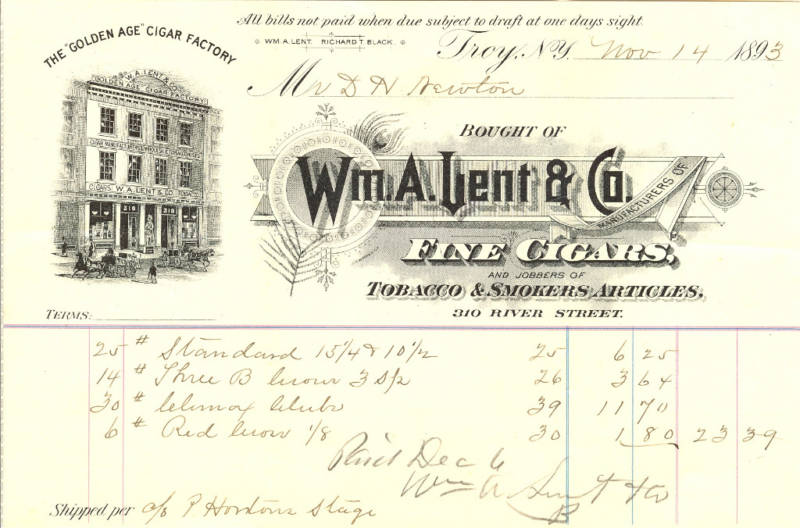 All bills not paid when due subject to draft at one days sight.
WM. A. LENT. RICHARD T. BLACK.
THE "GOLDEN AGE" CIGAR FACTORY
Troy, N.Y. Nov 14 1893
Mr D H Newton
W. A. LENT & CO.
GOLDEN AGE CIGAR FACTORY
CIGARS. W. A. LENT & CO.
310 310
BOUGHT OF
WM. A. LENT & CO.
MANUFACTURERS OF
FINE CIGARS,
AND JOBBERS OF
TOBACCO & SMOKERS ARTICLES,
310 RIVER STREET.
TERMS:
25 # Standard 15 1/4 & 10 1/2 25 6 25
14 # Three B 3 26 3 64
30 # Climax Clubs 39 11 70
6 # Red 1/8 30 1 80 23 39
Paid Dec 6
Wm A Lent & Co
B
Shipped per a/c P Hortons Stage